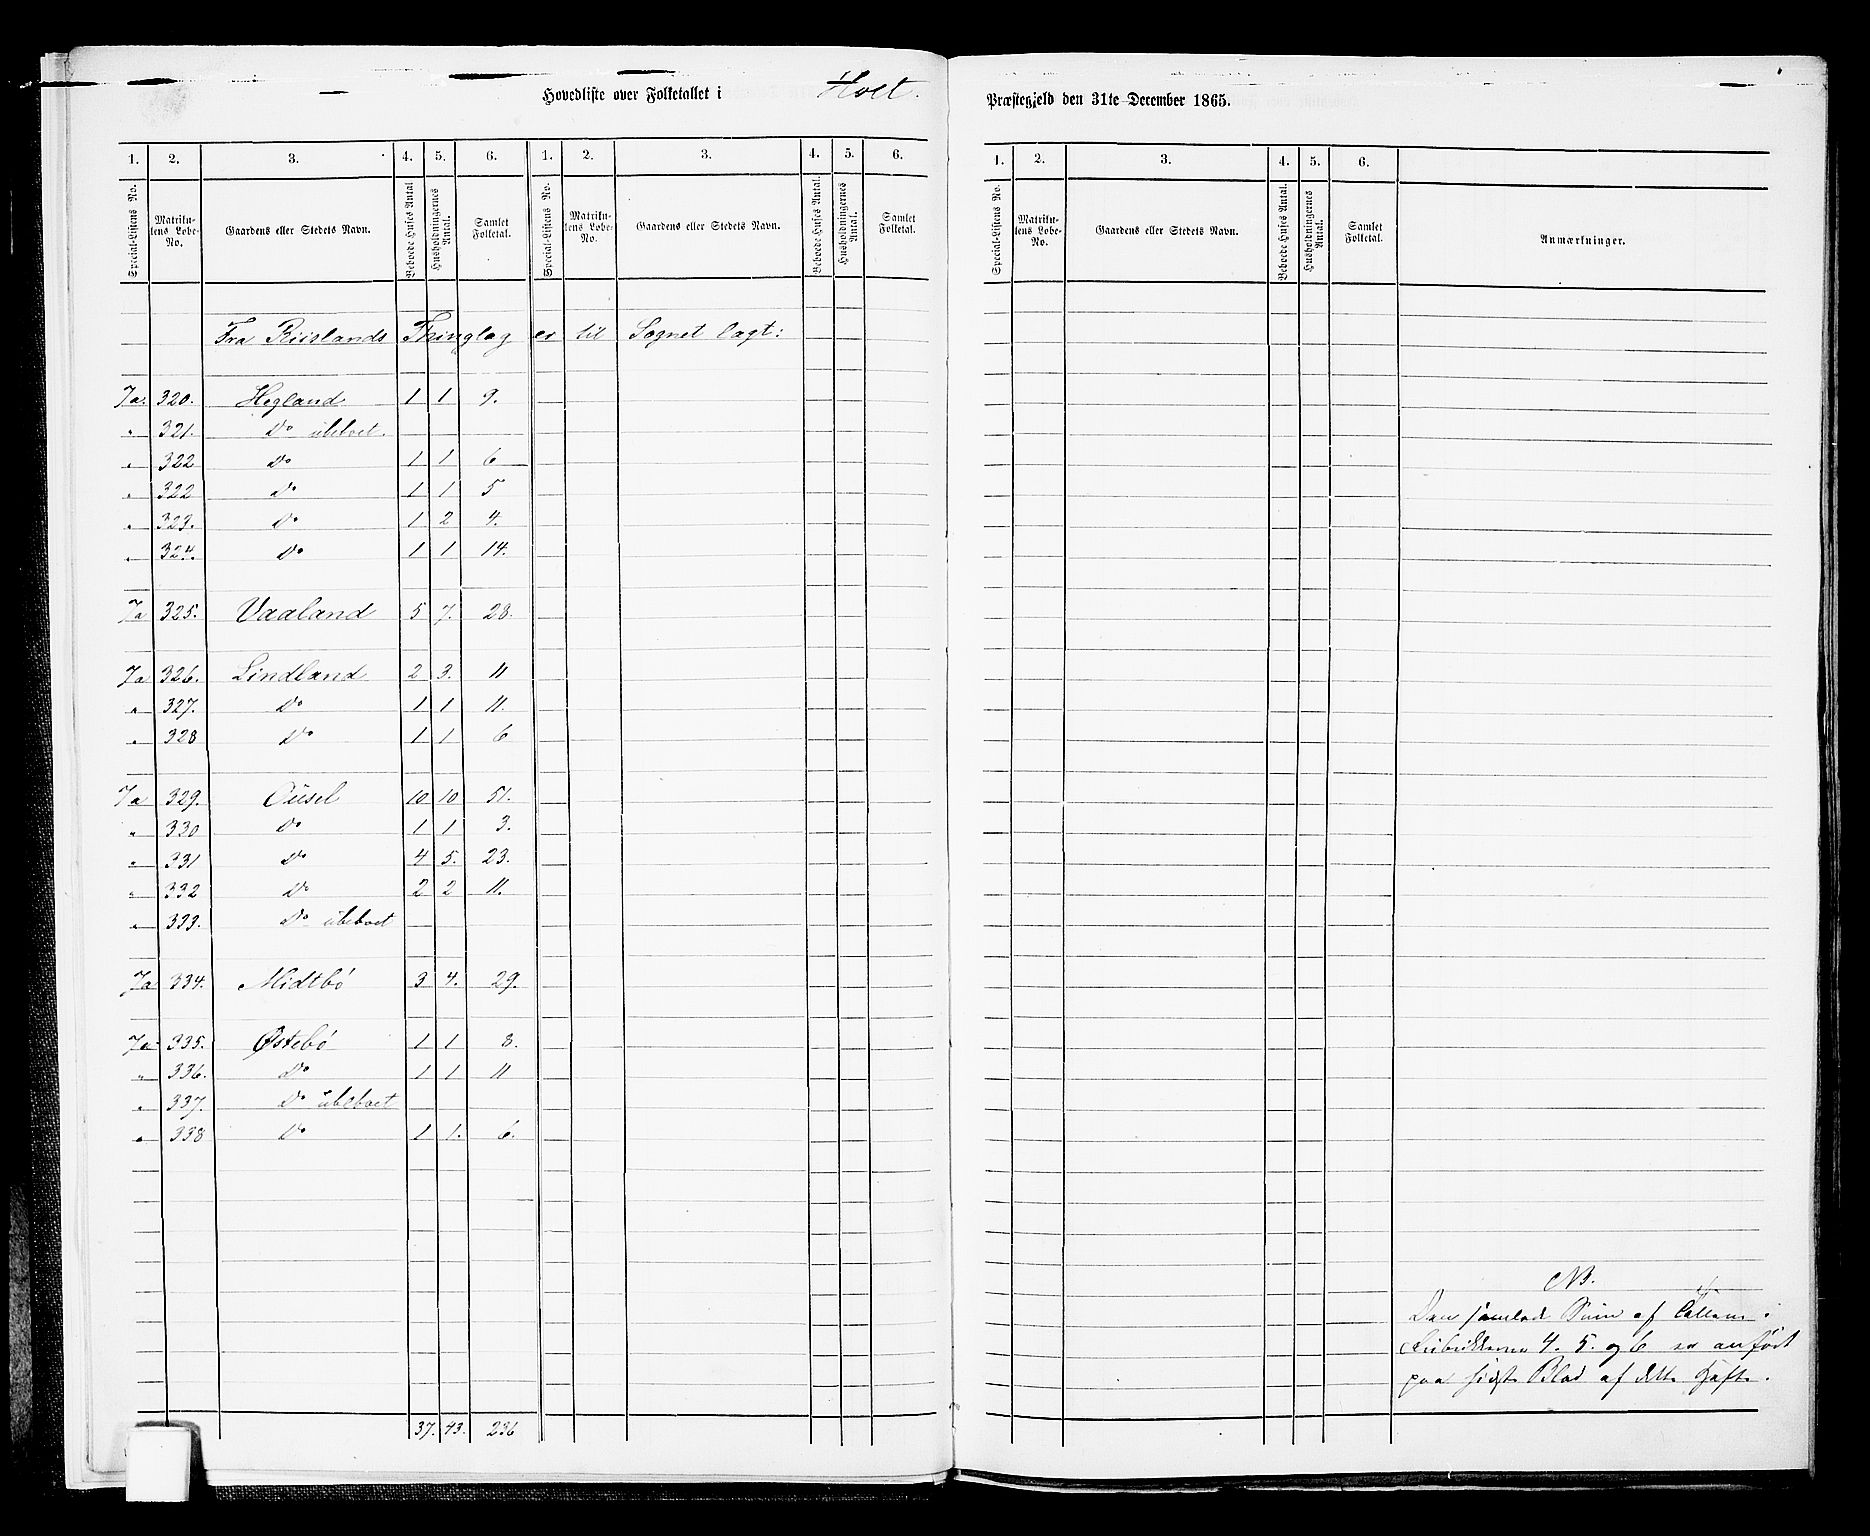 Hovedliste over Folketallet i Holt. Præstegjeld den 31te December 1865.
1. 2. 3. 4. 5. 6. 1. 2. 3. 4. 5. 6.
Special-Listens No. Matrikulens Løbe-No. Gaardens eller Stedets Navn. Beboede Huses Antal Husholdningernes Antal. Samlet Folketal. Special-Listens No. Matrikulens Løbe-No. Gaardens eller Stedets Navn. Beboede Huses Antal. Husholdningernes Antal. Samlet Folketal.
Fra Riislands Thinglag er til Sognet lagt:
7a. 320. Hegland 1 1 9.
" 321. Do ubeboet.
" 322 Do 1 1 6
" 322 Do 1 1 5
" 323. Do 1 2 4.
" 324. Do 1 1 14.
7a 325. Vaaland 5 7. 28.
7a 326. Lindland 2 3. 11
" 327. Do 1 1 11.
" 328 Do 1 1 6
7a 329. Ousel 10 10 51.
" 330 Do 1 1 3.
" 331 Do 4 5. 23.
" 332 Do 2 2 11.
" 333. Do ubeboet
7a 334. Midtbø 3 4. 29.
7a 335. Østebø 1 1 8.
" 336. Do 1 1 11
" 337. Do ubeboet
" 338 Do 1 1. 6.
37. 43. 236
1. 2. 3. 4. 5. 6.
Special-Listens No. Matrikulens Løbe-No. Gaardens eller Stedets Navn. Beboede Huses Antal. Husholdningernes Antal. Samlet Folketal. Anmærkninger.
NB.
Den samlede Sum af Tallene i
Rubrikkerne 4. 5. og 6 er anført
paa sidste Blad af dette Hæfte.